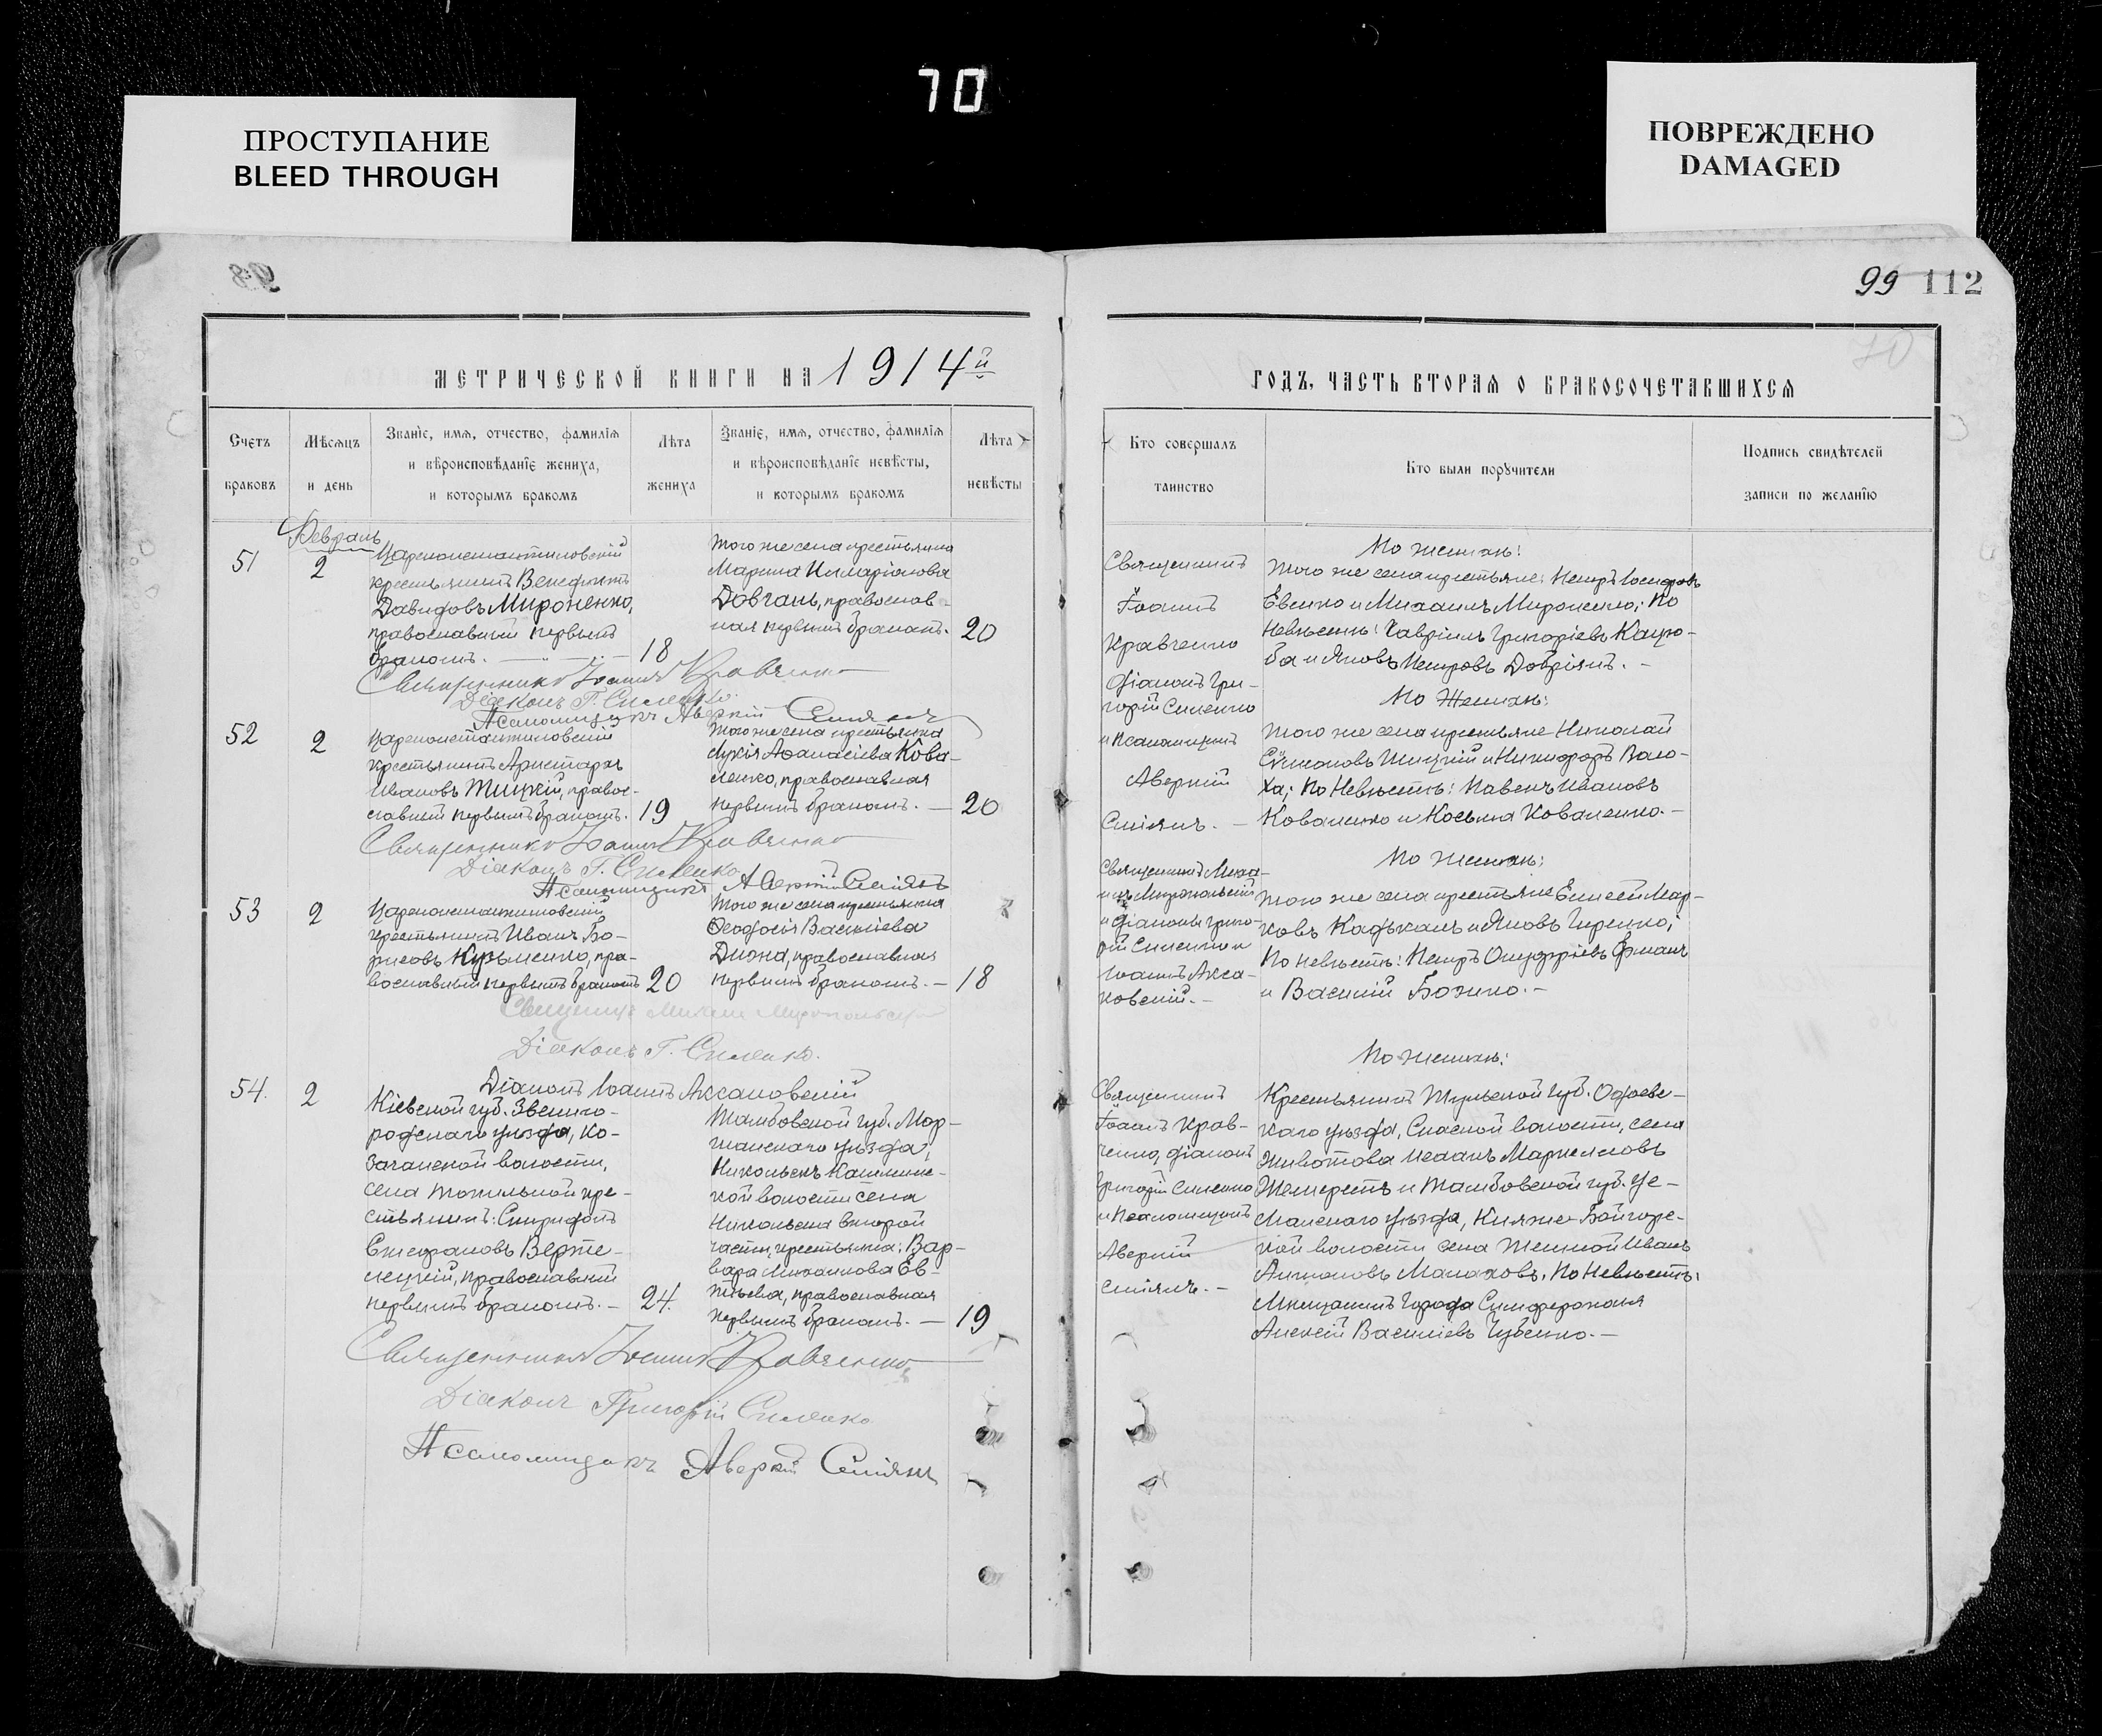 70
ПРОСТУПАНИЕ
BLEED THROUGH
ПОВРЕЖДЕНО
DAMAGED
99 112
МЕТРИЧЕСКОЙ КНИГИ НА 1914й
ГОДЪ, ЧАСТЬ ВТОРАЯ О БРАКОСОЧЕТАВШИХСЯ
Счетъ
браковъ
Мѣсяцъ
и день
Званіе, имя, отчество, фамилія
и вѣроисповѣданіе жениха,
и которымъ бракомъ
Лѣта
жениха
Званіе, имя, отчество, фамилія
и вѣроисповѣданіе невѣсты,
и которымъ бракомъ
Лѣта
невѣсты
Кто совершалъ
таинство
Кто были поручители
Подпись свидѣтелей
записи по желанію
Февраль
51
2
Цареконстантиновскій
крестьянинъ Венедиктъ
Давидовъ Мироненко,
православный первымъ
бракомъ.
18
Того же села крестьянка
Марина Иларіонова
Довгань, православ-
ная первымъ бракомъ.
20
Священникъ
Іоаннъ
Кравченко
діаконъ Гри-
горій Силенко
и Псаломщикъ
Аверкій
По женихѣ:
Того же села крестьяне: Петръ Іосифовъ
Евенко и Михаилъ Мироненко; По
Невѣстѣ: Гавріилъ Григоріевъ Кацю-
ба и Яковъ Петровъ
Священникъ Іоаннъ Кравченко
Діаконъ Г. Силенко.
Псаломщикъ Аверкій
52
2
Цареконстантиновскій
крестьянинъ Аристархъ
Ивановъ Тицкій, правос-
лавный первымъ бракомъ.
19
Того же села крестьянка
Лукія Аѳанасіева Кова-
ленко, православная
первымъ бракомъ.
20
По Женихѣ:
Того же села крестьяне Николай
и Никифоръ Воло-
ха; По Невѣстѣ: Павелъ Ивановъ
Коваленко и Косьма Коваленко.
Священникъ Іоаннъ Кравченко
Діаконъ Г. Силенко
Псаломщикъ Аверкій
53
2
Цареконстантиновскій
крестьянинъ Иванъ Бо-
рисовъ Кузьменко, пра-
вославный первымъ бракомъ
20
Того же села крестьянка
Ѳеодосія Василіева
православная
первымъ бракомъ.
18
Священникъ Миха-
илъ
и діаконы Григо-
рій Силенко и
Іоаннъ Акса-
ковскій.
По женихѣ:
Того же села крестьяне Елисей Мар-
ковъ и Яковъ
По невѣстѣ: Петръ Онуфріевъ
и Василій Божко.
Священникъ Михаилъ
Діаконъ Г. Силенко.
Діаконъ Іоаннъ Аксаковскій
54.
2
Кіевской губ. Звениго-
родскаго уѣзда, Ко-
зачанской волости,
села Топильной кре-
стьянинъ: Спиридонъ
Стефановъ Верте-
лецкій, православный
первымъ бракомъ.
24.
Тамбовской губ. Мор-
шанскаго уѣзда,
кой волости села
Никольска второй
части, крестьянка: Вар-
вара Михаилова Ев-
православная
первымъ бракомъ.
19
Священникъ
Іоаннъ Крав-
ченко, діаконъ
Григорій Силенко
и Псаломщикъ
Аверкій
По женихѣ:
Крестьянинъ Тульской губ. Одоевс-
каго уѣзда, Спасской волости, села
Животова Исаакъ
и Тамбовской губ. Ус-
манскаго уѣзда, Княже-Байгорс-
кой волости села Иванъ
Антоновъ Малаховъ. По Невѣстѣ:
Мѣщанинъ города Симферополя
Алексій Василіевъ Чубенко.
Священникъ Іоаннъ Кравченко
Діаконъ Григорій Силенко
Псаломщикъ Аверкій